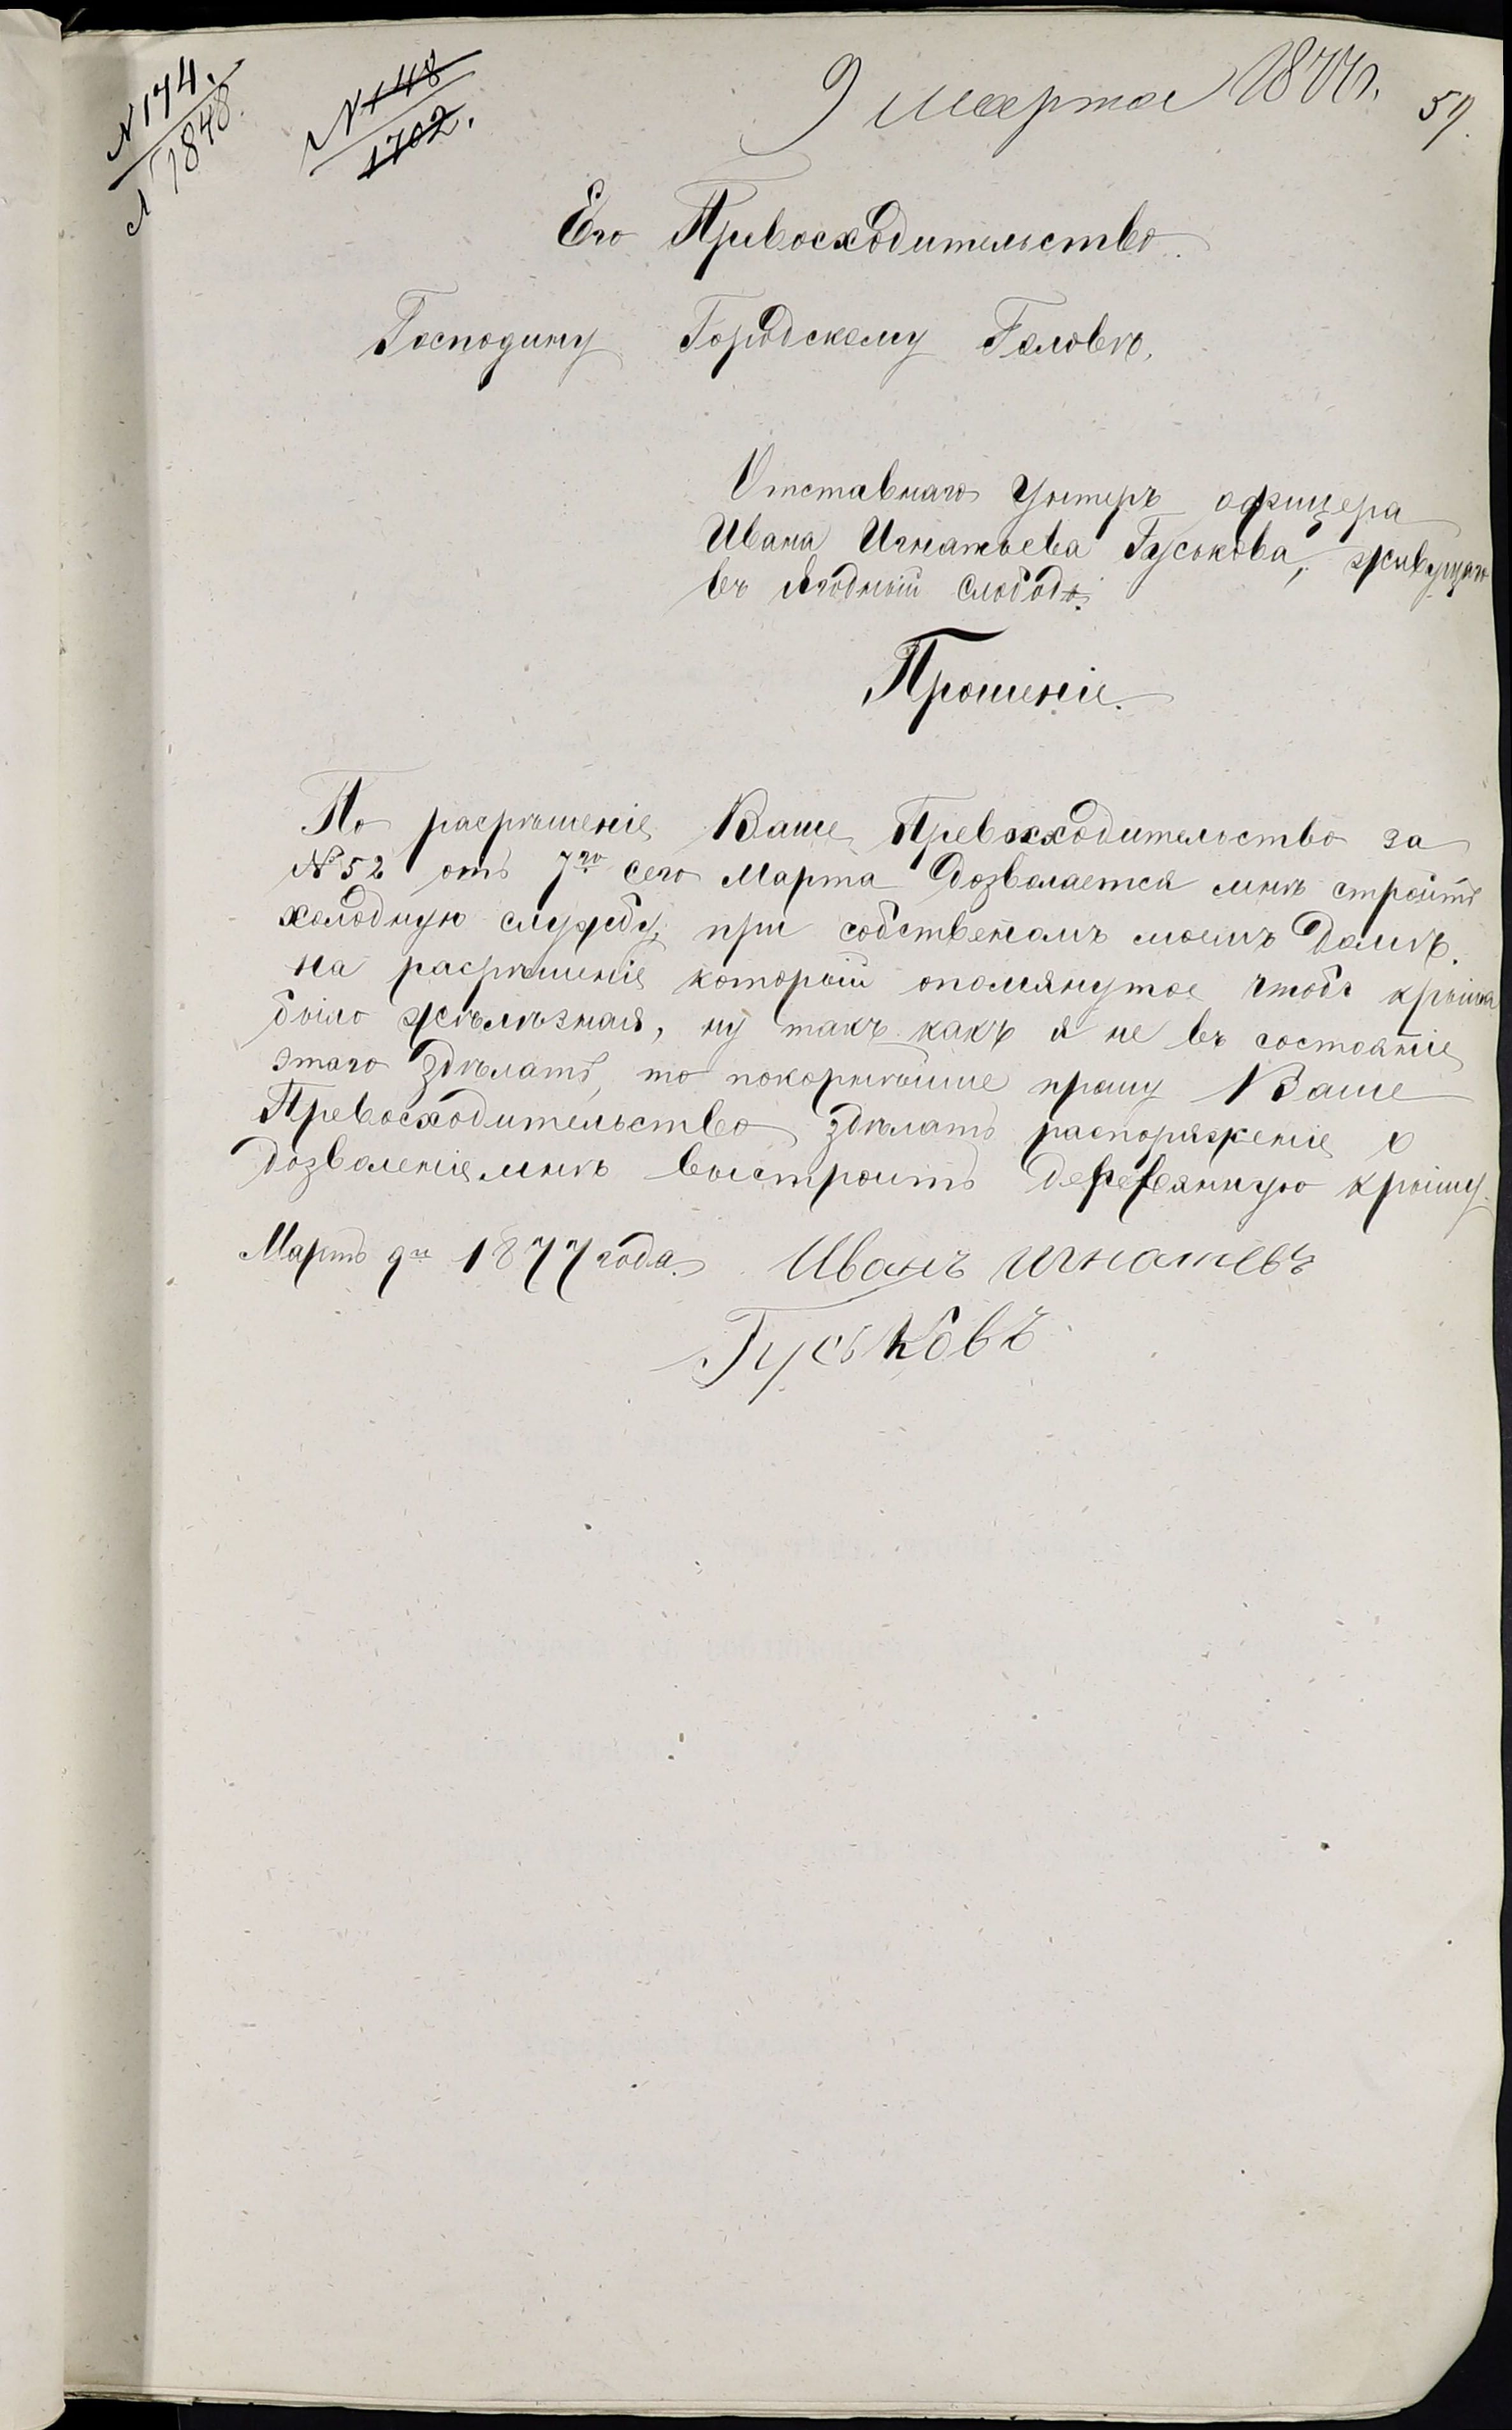 N 174.
N 1848.
N 148
1702.
9 марта 1877г.
59.
Его Превосходительство.
Господину Городскому Головѣ,
Отставнаго Унтеръ офицера
Ивана Игнатьева Гуськова, живущаго
въ Ягодный слободѣ.
Прошеніе.
По расрѣшеніе Ваше Превосходительство за
№ 52 отъ 7го сего Марта дозволается мнѣ строить
холодную службу, при собственомъ моемъ Домѣ.
На расрѣшеніе который опомянутое чтобъ крышка
было жѣлѣзная, ну такъ какъ я не въ состояніе
этаго здѣлать, то покорнѣйше прошу Ваше
Превосходительство здѣлать распоряженіе о
дозволеніе мнѣ выстроить деревянную крышу.
Мартъ 9го 1877 года. Иванъ Игнатевъ
Гуськовъ